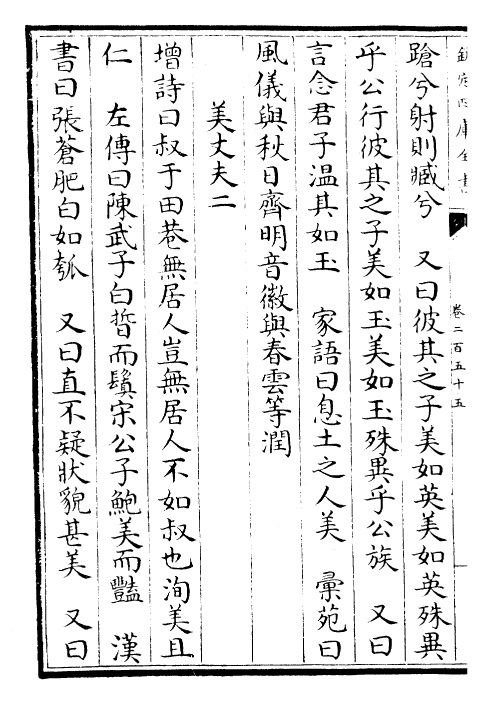 欽定四庫全書
卷二百五十五
蹌兮射則臧兮　又曰彼其之子美如英美如英殊異
乎公行彼其之子美如玉美如玉殊異乎公族　又曰
言念君子溫其如玉　家語曰息土之人美　彚苑曰
風儀與秋日齊明音徽與春雲等潤
美丈夫二
增詩曰叔于田巷無居人豈無居人不如叔也洵美且
仁　左傳曰陳武子白晳而鬒宋公子鮑美而豔　漢
書曰張蒼肥白如瓠　又曰直不疑狀貌甚美　又曰